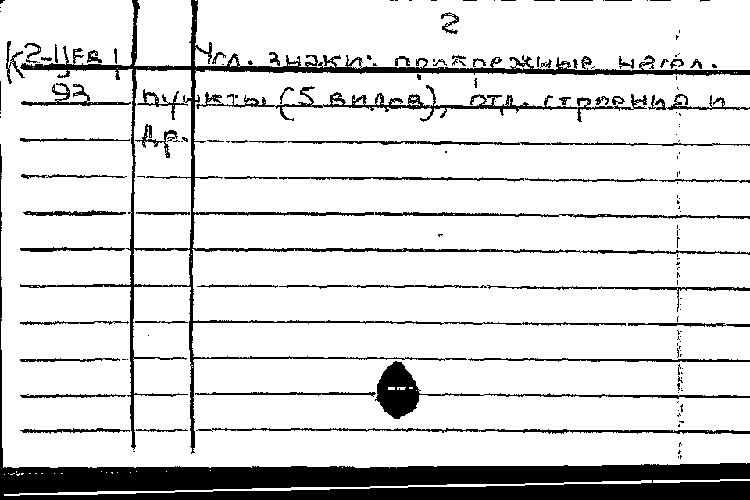 2
К 2-11 Усл. знаки: прибрежные насел.
93 пункты (5 видов), отд. строения и
др.